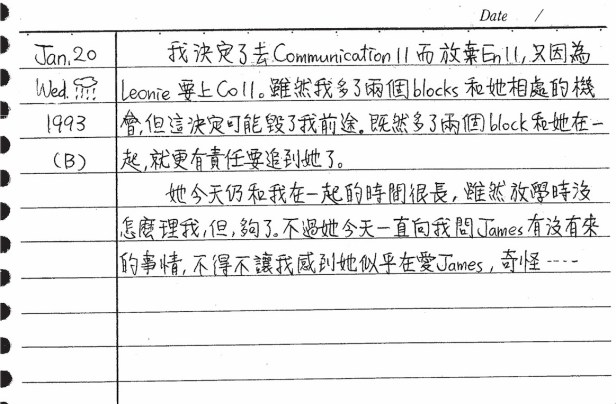 Date /
Jan. 20 我決定了去Communication 11 而放棄En11, 又因為
Wed. Leonie 要上Co11。雖然我多了兩個blocks 和她相處的機
1993 會,但這決定可能毀了我前途。既然多了兩個block和她在一
(B) 起,就更有責任要追到她了。
她今天仍和我在一起的時間很長,雖然放學時沒
怎麼理我,但,夠了。不過她今天一直向我問James有沒有來
的事情,不得不讓我感到她似乎在愛James,奇怪……